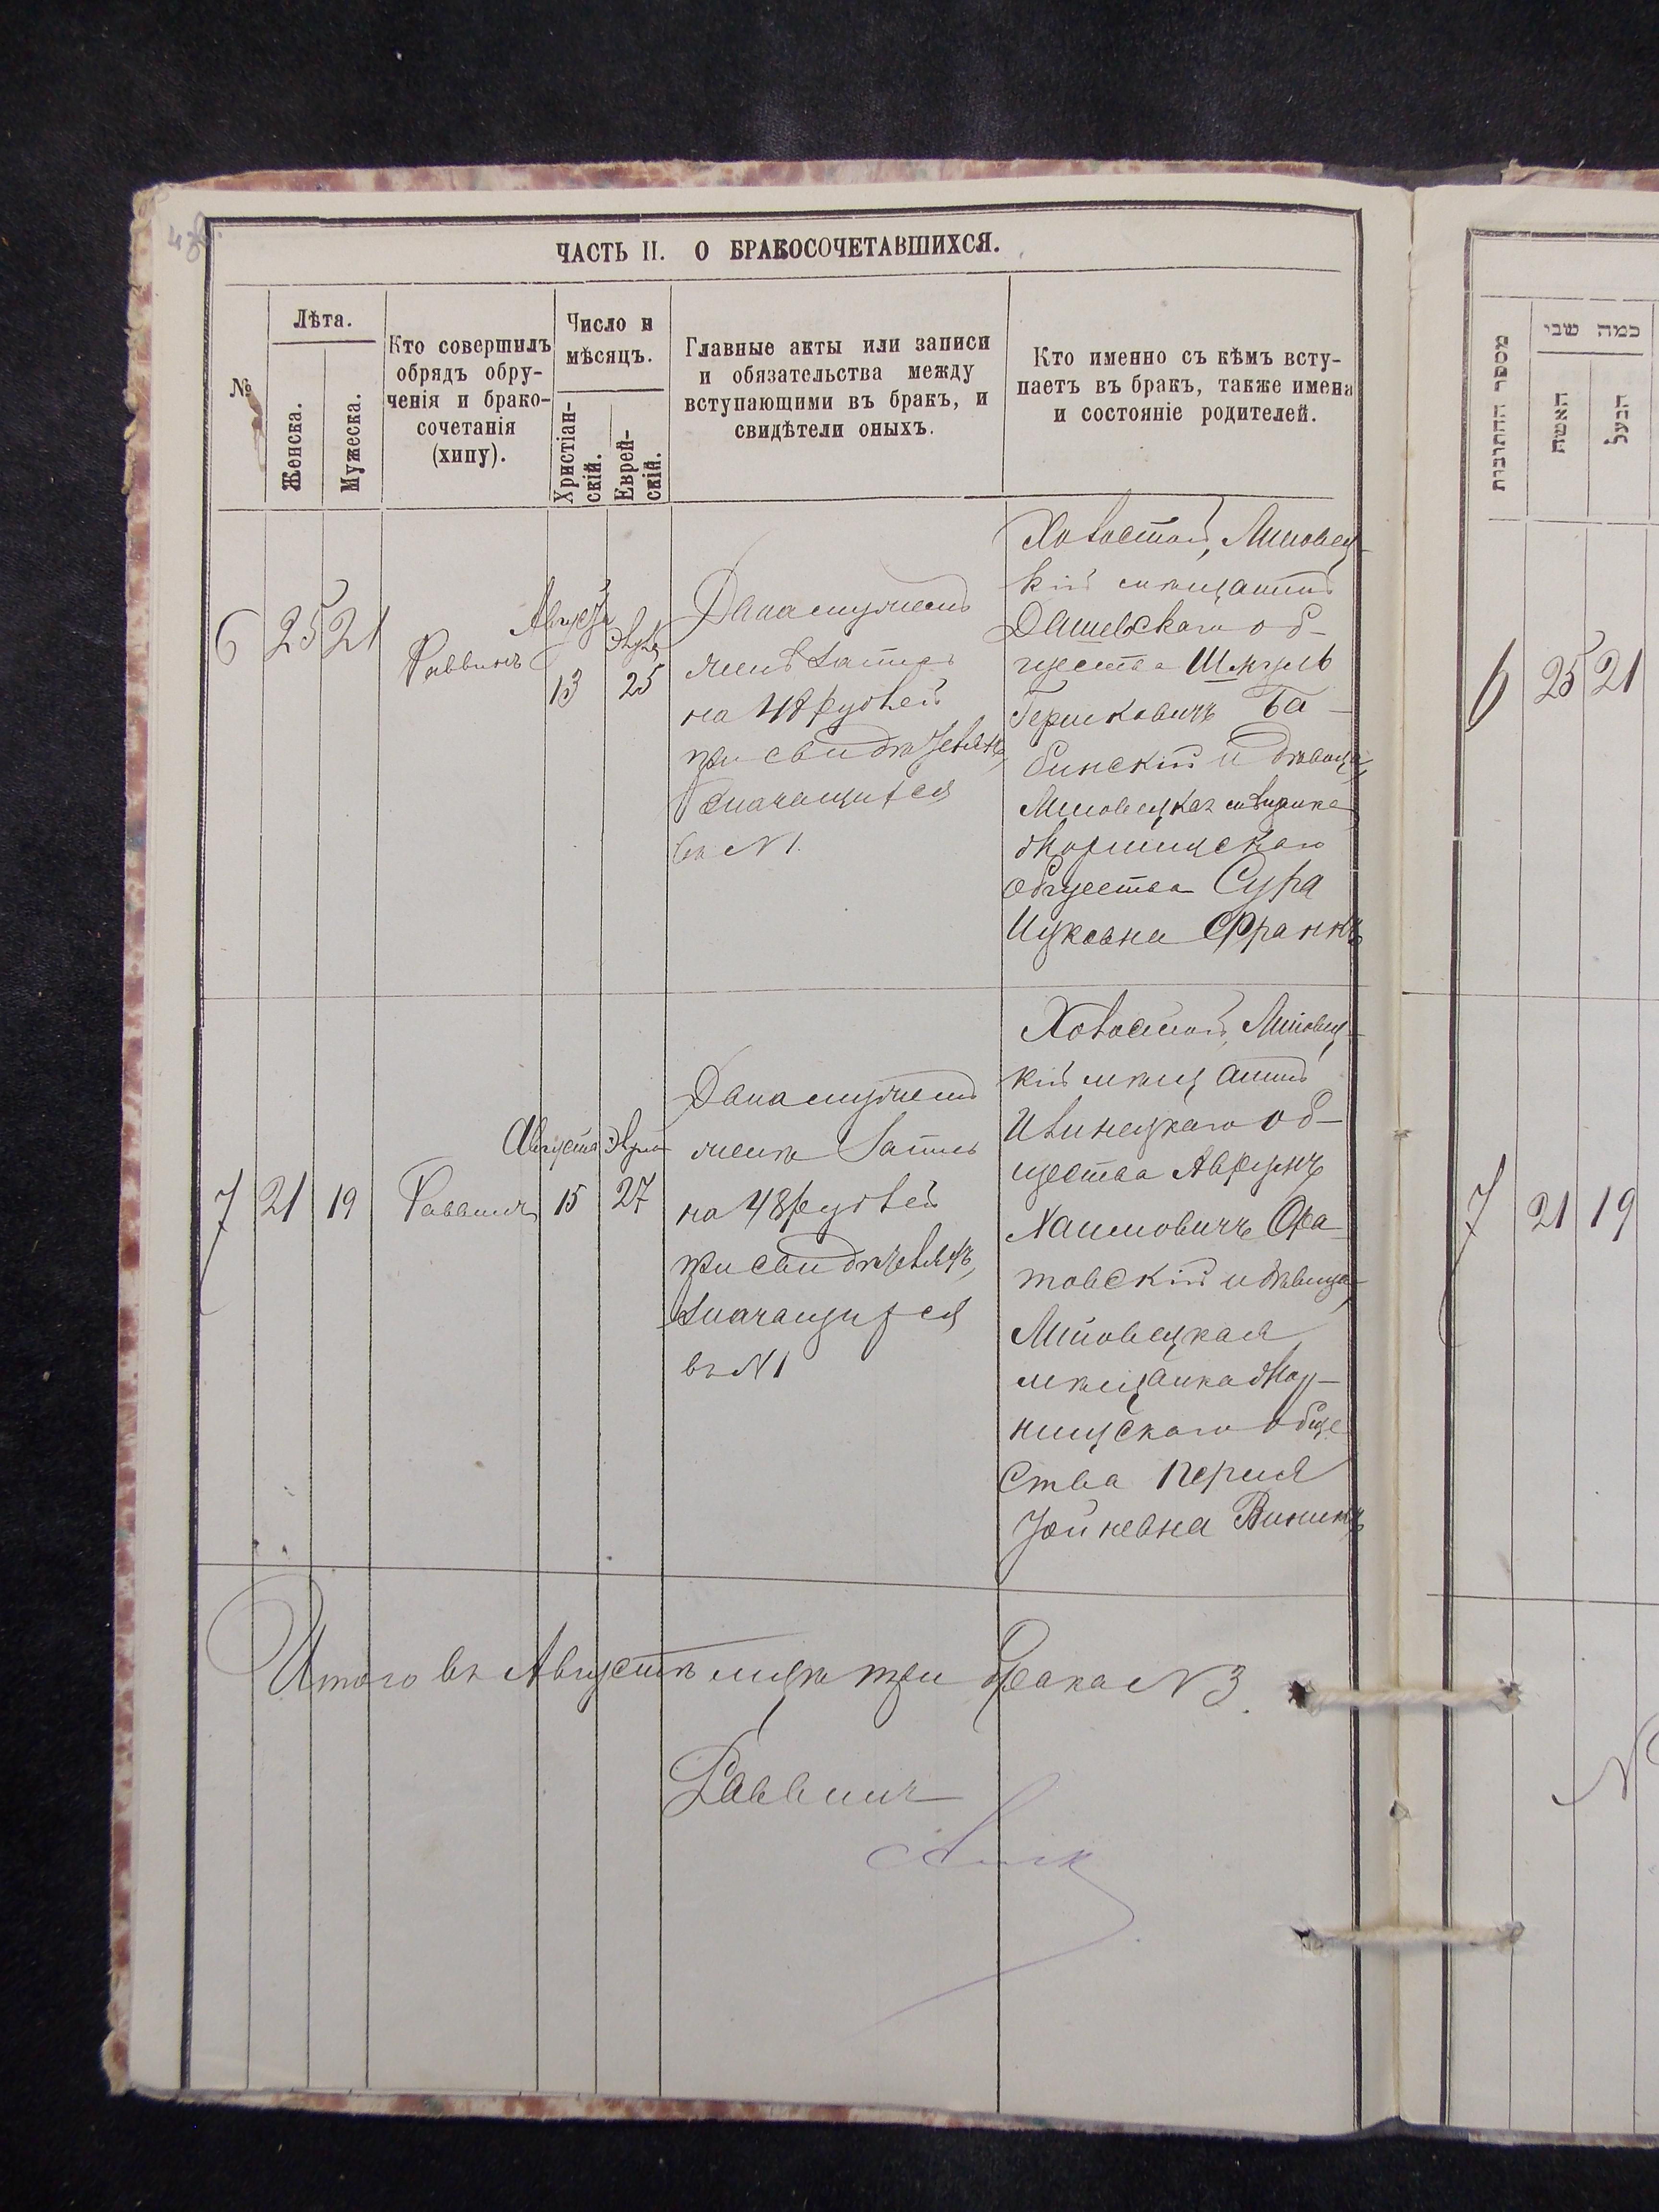 ЧАСТЬ II. О БРАКОСОЧЕТАВШИХСЯ.
№
Лѣта.
Женска.
Мужеска.
Кто совершилъ
обрядъ обру-
ченія и брако-
сочетанія
(хипу).
Число и
мѣсяцъ.
Христіан-
скій.
Еврей-
скій.
Главные акты или записи
и обязательства между
вступающими въ бракъ, и
свидѣтели оныхъ.
Кто именно съ кѣмъ всту-
паетъ въ бракъ, также имена
и состояніе родителей.
6
25
21
Раввинъ
Августа
13
25
Дана мужемъ
женѣ запись
на 48 рублей
при свидѣтеляхъ,
значащихся
въ N 1.
Холостой, Липовец-
кій мѣщанинъ
Дашевскаго об-
щества Шмуль
Гершковичъ Ба-
бинскій и дѣвица,
Липовецкая мѣщанка
общества Сура
Ицковна Франкъ
7
21
19
Раввинъ
Августа
15
27
Дана мужемъ
женѣ запись
на 48 рублей
при свидѣтеляхъ,
значащихся
въ N 1
Холостой, Липовец-
кій мѣщанинъ
Илинецкаго об-
щества Аврумъ
Хаимовичъ Ора-
товскій и дѣвица,
Липовецкая
мѣщанка
обще
ства Перля
Винникъ
Итого въ Августѣ м-цѣ три брака N 3.
Раввинъ
מספר החתונות
כמה שני
האשה
הבעל
6
25
21
7
21
19